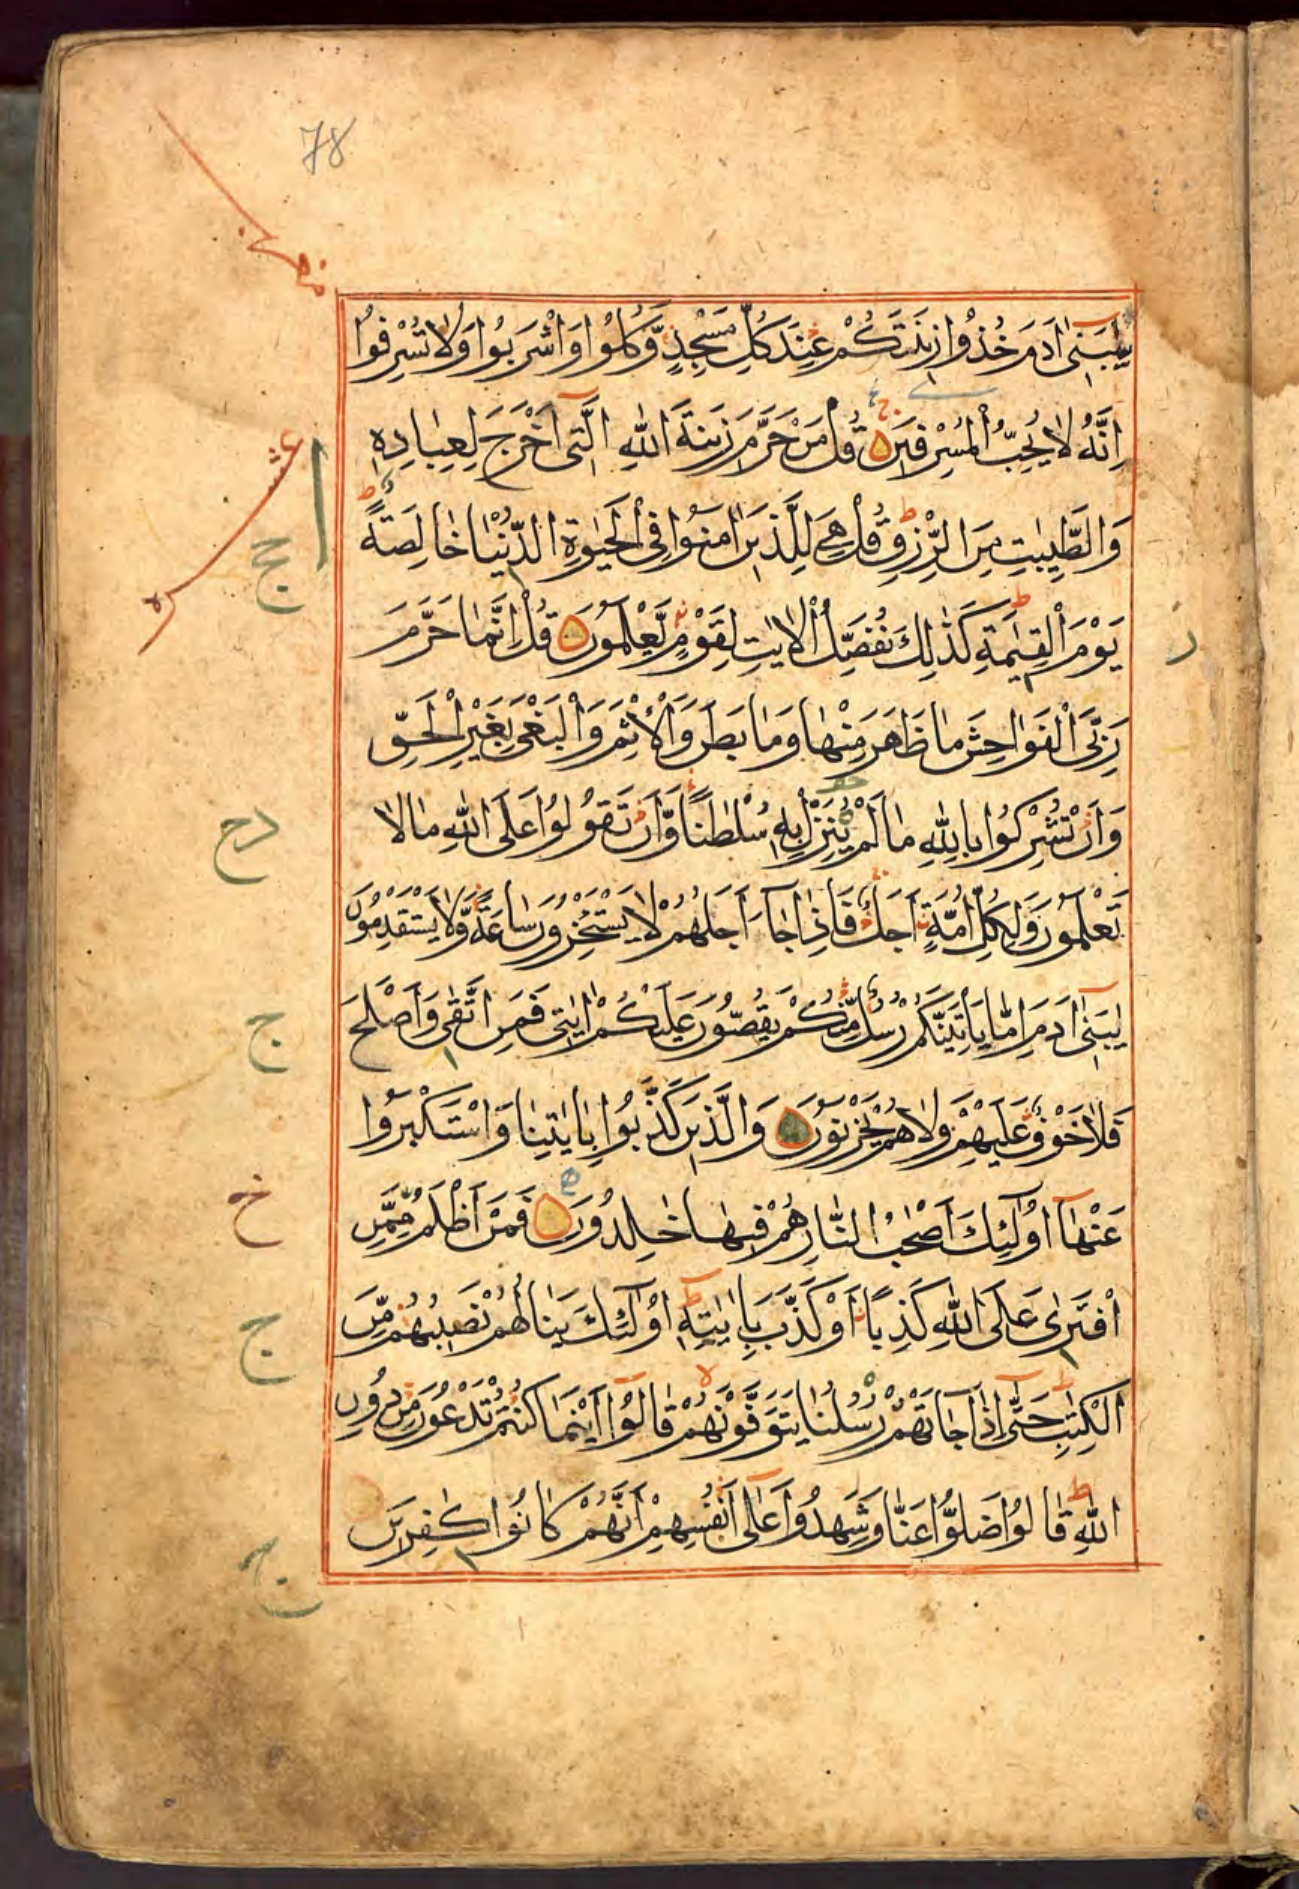 78
يٰبَنِىٓ اٰدَمَ خُذُوْا زِيْنَتَكُمْ عِنْدَ كُلِّ مَسْجِدٍ وَّكُلُوْا وَاشْرَبُوْا وَلَا تُسْرِفُوْا
اِنَّهُ لَا يُحِبُّ الْمُسْرِفِيْنَ قُلْ مَنْ حَرَّمَ زِيْنَةَ اللّٰهِ الَّتِىٓ اَخْرَجَ لِعِبَادِهٖ
وَالطَّيِّبٰتِ مِنَ الرِّزْقِ قُلْ هِىَ لِلَّذِيْنَ اٰمَنُوْا فِى الْحَيٰوةِ الدُّنْيَا خَالِصَةً
يَوْمَ الْقِيٰمَةِ كَذٰلِكَ نُفَصِّلُ الْاٰيٰتِ لِقَوْمٍ يَّعْلَمُوْنَ قُلْ اِنَّمَا حَرَّمَ
رَبِّىَ الْفَوَاحِشَ مَا ظَهَرَ مِنْهَا وَمَا بَطَنَ وَالْاِثْمَ وَالْبَغْىَ بِغَيْرِ الْحَقِّ
وَاَنْ تُشْرِكُوْا بِاللّٰهِ مَا لَمْ يُنَزِّلْ بِهٖ سُلْطٰنًا وَّاَنْ تَقُوْلُوْا عَلَى اللّٰهِ مَا لَا
تَعْلَمُوْنَ وَلِكُلِّ اُمَّةٍ اَجَلٌ فَاِذَا جَآءَ اَجَلُهُمْ لَا يَسْتَخِرُوْنَ سَاعَةً وَّلَا يَسْتَقْدِمُوْنَ
يٰبَنِىٓ اٰدَمَ اِمَّا يَاْتِيَنَّكُمْ رُسُلٌ مِّنْكُمْ يَقُصُّوْنَ عَلَيْكُمْ اٰيٰتِى فَمَنِ اتَّقٰى وَاَصْلَحَ
فَلَا خَوْفٌ عَلَيْهِمْ وَلَا هُمْ يَحْزَنُوْنَ وَالَّذِيْنَ كَذَّبُوْا بِاٰيٰتِنَا وَاسْتَكْبَرُوْا
عَنْهَآ اُولٰٓئِكَ اَصْحٰبُ النَّارِ هُمْ فِيْهَا خٰلِدُوْنَ فَمَنْ اَظْلَمُ مِمَّنِ
افْتَرٰى عَلَى اللّٰهِ كَذِبًا اَوْ كَذَّبَ بِاٰيٰتِهٖ اُولٰٓئِكَ يَنَالُهُمْ نَصِيْبُهُمْ مِّنَ
الْكِتٰبِ حَتّٰىٓ اِذَا جَآءَتْهُمْ رُسُلُنَا يَتَوَفَّوْنَهُمْ قَالُوْٓا اَيْنَمَا كُنْتُمْ تَدْعُوْنَ مِنْ دُوْنِ
اللّٰهِ قَالُوْا ضَلُّوْا عَنَّا وَشَهِدُوْا عَلٰىٓ اَنْفُسِهِمْ اَنَّهُمْ كَانُوْا كٰفِرِيْنَ